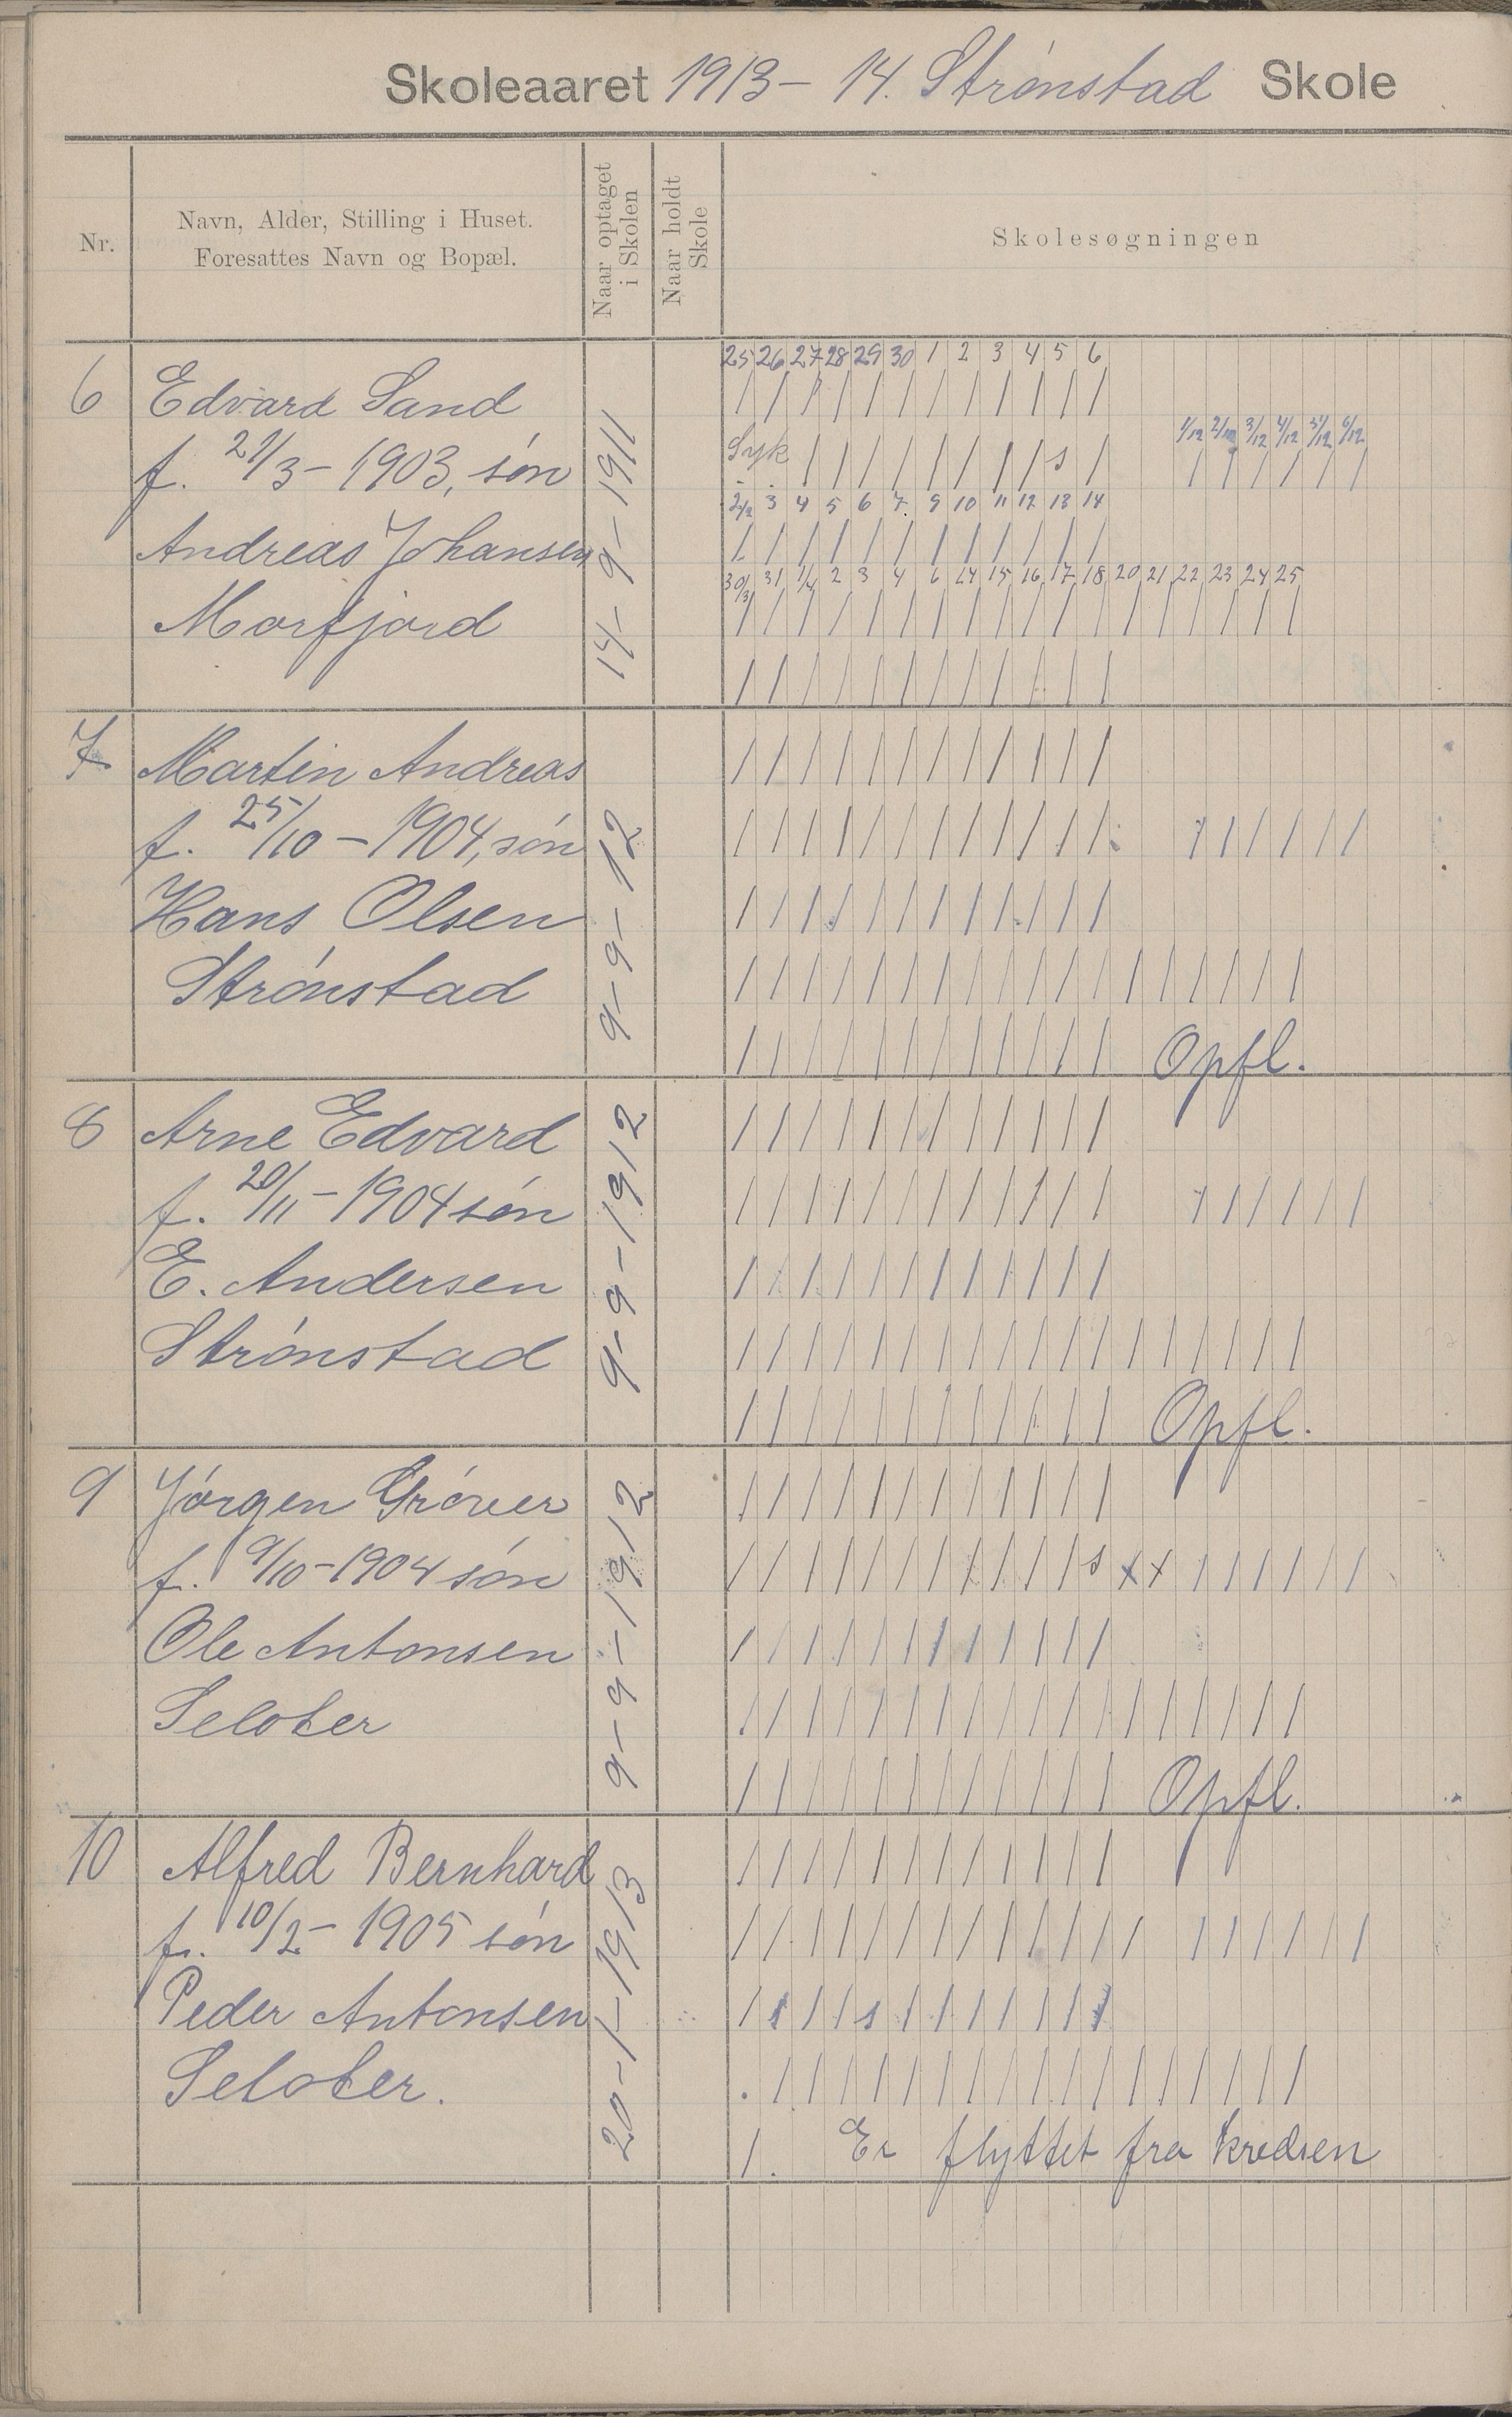 Skoleaaret 1913-14. Strønstad Skole
Nr.
Navn, Alder, Stilling i Huset.
Foresattes Navn og Bopæl.
Naar optaget
i Skolen
Naar holdt
Skole
Skolesøgningen
25 26 27 28 29 30 1 2 3 4 5 6
6 Edvard Sand
/ / / / / / / / / / / /
1/12 2/12 3/12 4/12 5/12 6/12
f. 21/3-1903, søn
14-9-1911
Syk / / / / / / / s / / / / / / /
2/2 3 4 5 6 7 9 10 11 12 13 14
Andreas Johansen
/ / / / / / / / / / / /
30/3 31 1/4 2 3 4 6 14 15 16 17 18 20 21 22 23 24 25
Morfjord
/ / / / / / / / / / / / / / / / / /
/ / / / / / / / / / / /
7 Martin Andreas
/ / / / / / / / / / / /
f. 25/10-1904, søn
9-9-12
/ / / / / / / / / / / / / / / / / /
Hans Olsen
/ / / / / / / / / / / /
Strønstad
/ / / / / / / / / / / / / / / / / /
/ / / / / / / / / / / / Opfl.
8 Arne Edvard
/ / / / / / / / / / / /
f. 20/11-1904 søn
9-9-1912
/ / / / / / / / / / / / / / / / / /
E. Andersen
/ / / / / / / / / / / /
Strønstad
/ / / / / / / / / / / / / / / / / /
/ / / / / / / / / / / / Opfl.
9 Jørgen Grøver
/ / / / / / / / / / / /
f. 9/10-1904 søn
9-9-1912
/ / / / / / / / / / / s x x / / / / / /
Ole Antonsen
/ / / / / / / / / / / /
Selöter
/ / / / / / / / / / / / / / / / / /
/ / / / / / / / / / / / Opfl.
10 Alfred Bernhard
/ / / / / / / / / / / /
f. 10/2-1905 søn
20-1-1913
/ / / / / / / / / / / / / / / / / / /
Peder Antonsen
/ / / / s / / / / / / /
Selöter.
. / / / / / / / / / / / / / / / / /
/. Er flyttet fra kredsen